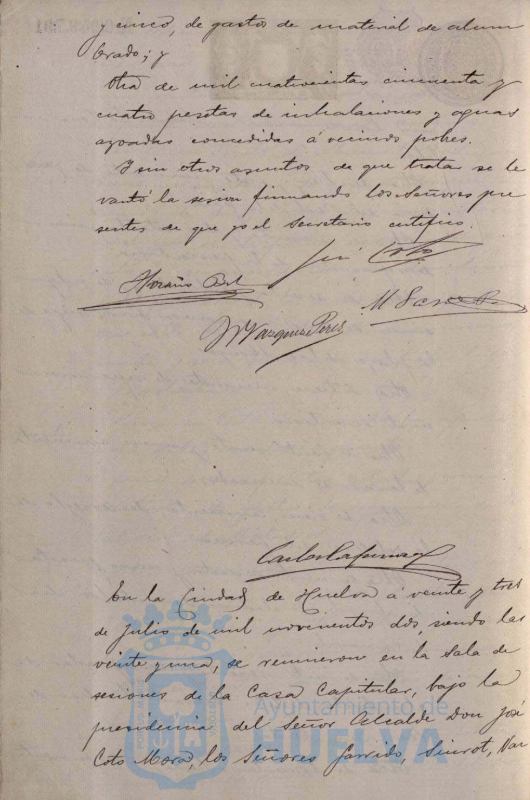 y cinco, de gastos de material de alum
brado; y
Otra de mil cuatrocientas cincuenta y
cuatro pesetas de inhalaciones y aguas
azoadas concedidas á vecinos pobres.
Y sin otros asuntos de que tratar se le
vantó la sesion firmando los Señores pre
sentes de que yo el Secretario certifico.
José Coto
M Vazquez Perez
En la Ciudad de Huelva á veinte y tres
de Julio de mil novecientos dos, siendo las
veinte y una, se reunieron en la Sala de
sesiones de la Casa Capitular, bajo la
presidencia del Señor Alcalde Don José
Coto Mora, los Señores Garrido, Siurot, Vaz
Ayuntamiento de
HUELVA